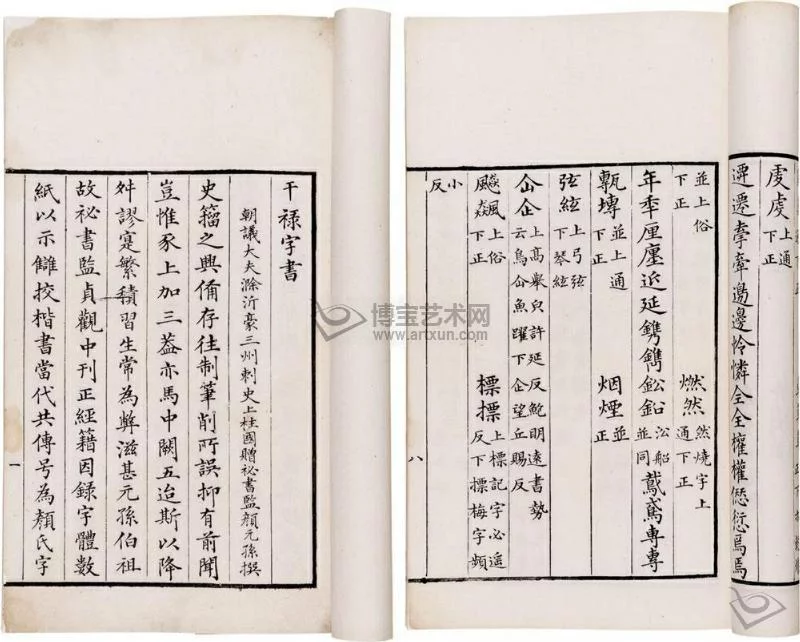 干祿字書
朝議大夫滁沂豪三州刺史上柱國贈祕書監顏元孫撰
史籀之興備存往制筆削所誤抑有前聞
豈惟豕上加三蓋亦馬中闕五迨斯以降
舛謬寔繁積習生常為弊滋甚元孫伯祖
故祕書監貞觀中刊正經籍因錄字體數
紙以示讎挍楷書當代共傳号為顏氏字
一
䖍虔上通
遷遷牽牽邊邊怜憐仝全權權愆愆焉焉
並上俗下正
燃然然燒字上通下正
年秊厘廛近延鐫鐫鈆鉛㳂船並同鵞鳶專專
甎塼並上通下正
烟煙並正
弦絃上弓弦下琴絃
仚企上高舉皃許延反鮑明遠書勢云鳥仚魚躍下企望丘賜反
飈飆上俗下正
標摽上標記字必遥反下摽梅字頻小反
八
博宝艺术网
www.artxun.com